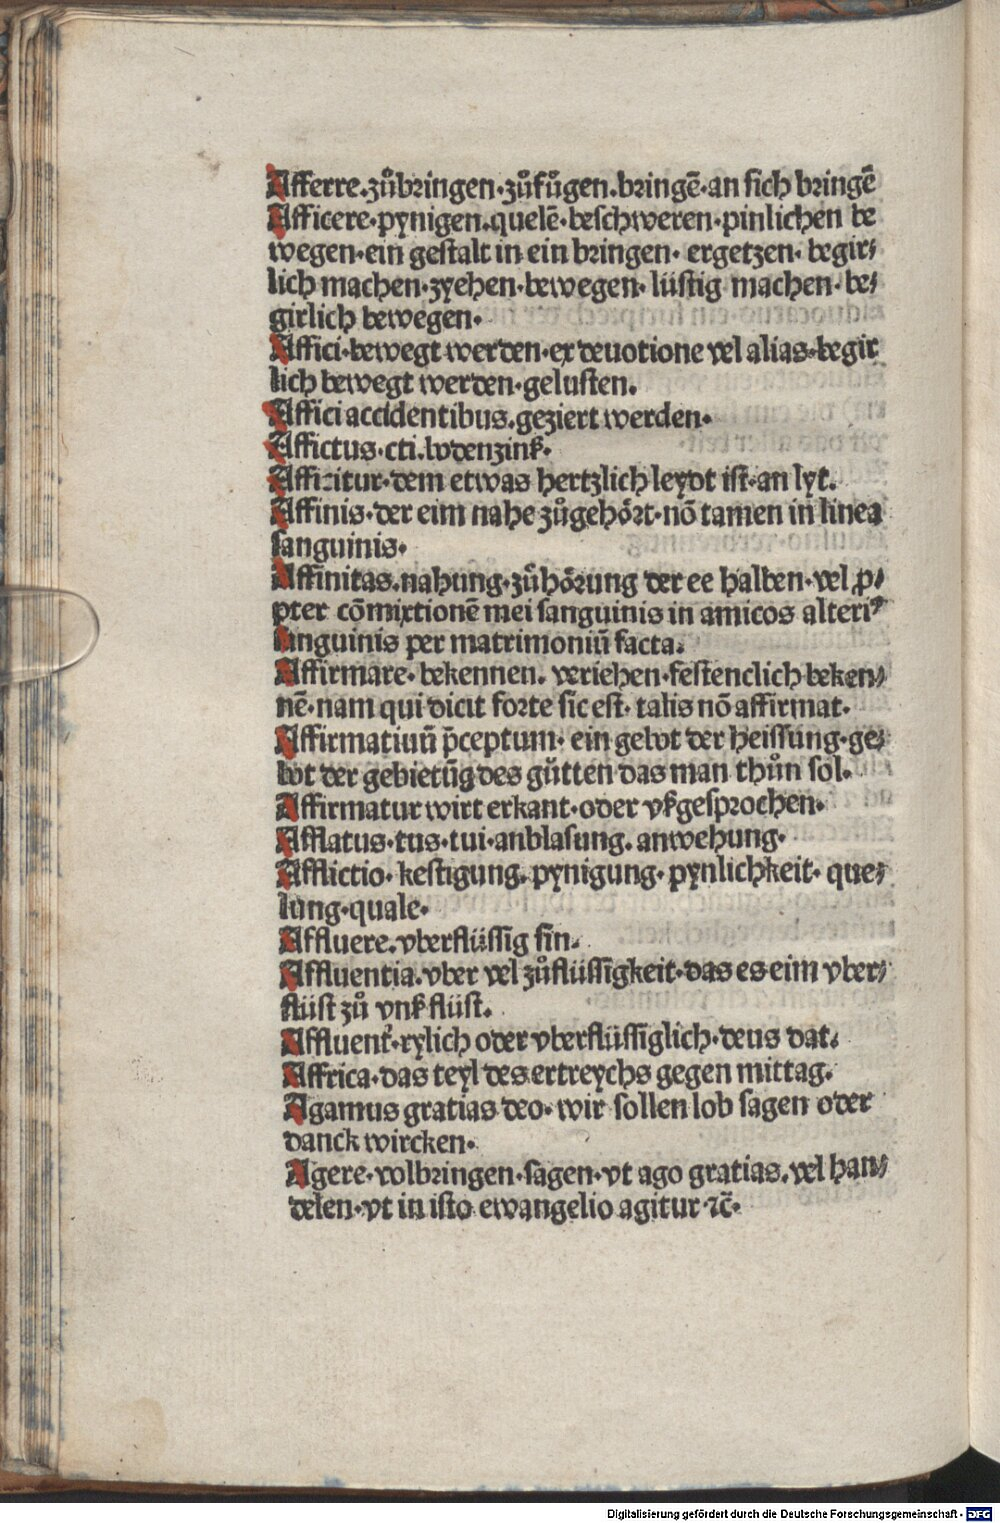 Afferre.zůbringen·zůfůgen.bringē·an sich bringē
Afficere·pynigen.quelē·beschweren·pinlichen be
wegen·ein gestalt in ein bringen· ergetzen· begir⸗
lich machen·zyehen·bewegen· lüstig machen·be⸗
girlich bewegen·
Affici·bewegt werden·ex deuotione vel alias·begir
lich bewegt werden·gelusten.
Affici accidentibus.geziert werden·
Affictus·cti.bodenzinß·
Afficitur·dem etwas hertzlich leydt ist·an lyt.
Affinis·der eim nahe zůgehört·nō tamen in linea
sanguinis·
Affinitas.nahung·zůhörung der ee halben·vel ꝓ⸗
pter cōmixtionē mei sanguinis in amicos alteriꝰ
sanguinis per matrimoniū facta.
Affirmare· bekennen. veriehen·festenclich beken⸗
nē·nam qui dicit forte sic est· talis nō affirmat·
Affirmatiuū p̄ceptum· ein gebot der heissung·ge⸗
bot der gebietūg des gůtten das man thůn sol·
Affirmatur wirt erkant·oder vßgesprochen·
Afflatus·tus·tui·anblasung. anwehung·
Afflictio· kestigung. pynigung· pynlichkeit· que⸗
lung·quale·
Affluere.vberflüssig sin.
Affluentia.vber vel zůflüssigkeit·das es eim vber⸗
flüst zů vnß flüst.
Affluent᷑·rylich oder vberflüssiglich·deus dat.
Affrica·das teyl des ertreychs gegen mittag.
Agamus gratias deo·wir sollen lob sagen oder
danck wircken·
Agere·volbringen·sagen·vt ago gratias.vel han⸗
delen·vt in isto ewangelio agitur ⁊c̄·
Digitalisierung gefördert durch die Deutsche Forschungsgemeinschaft - DFG